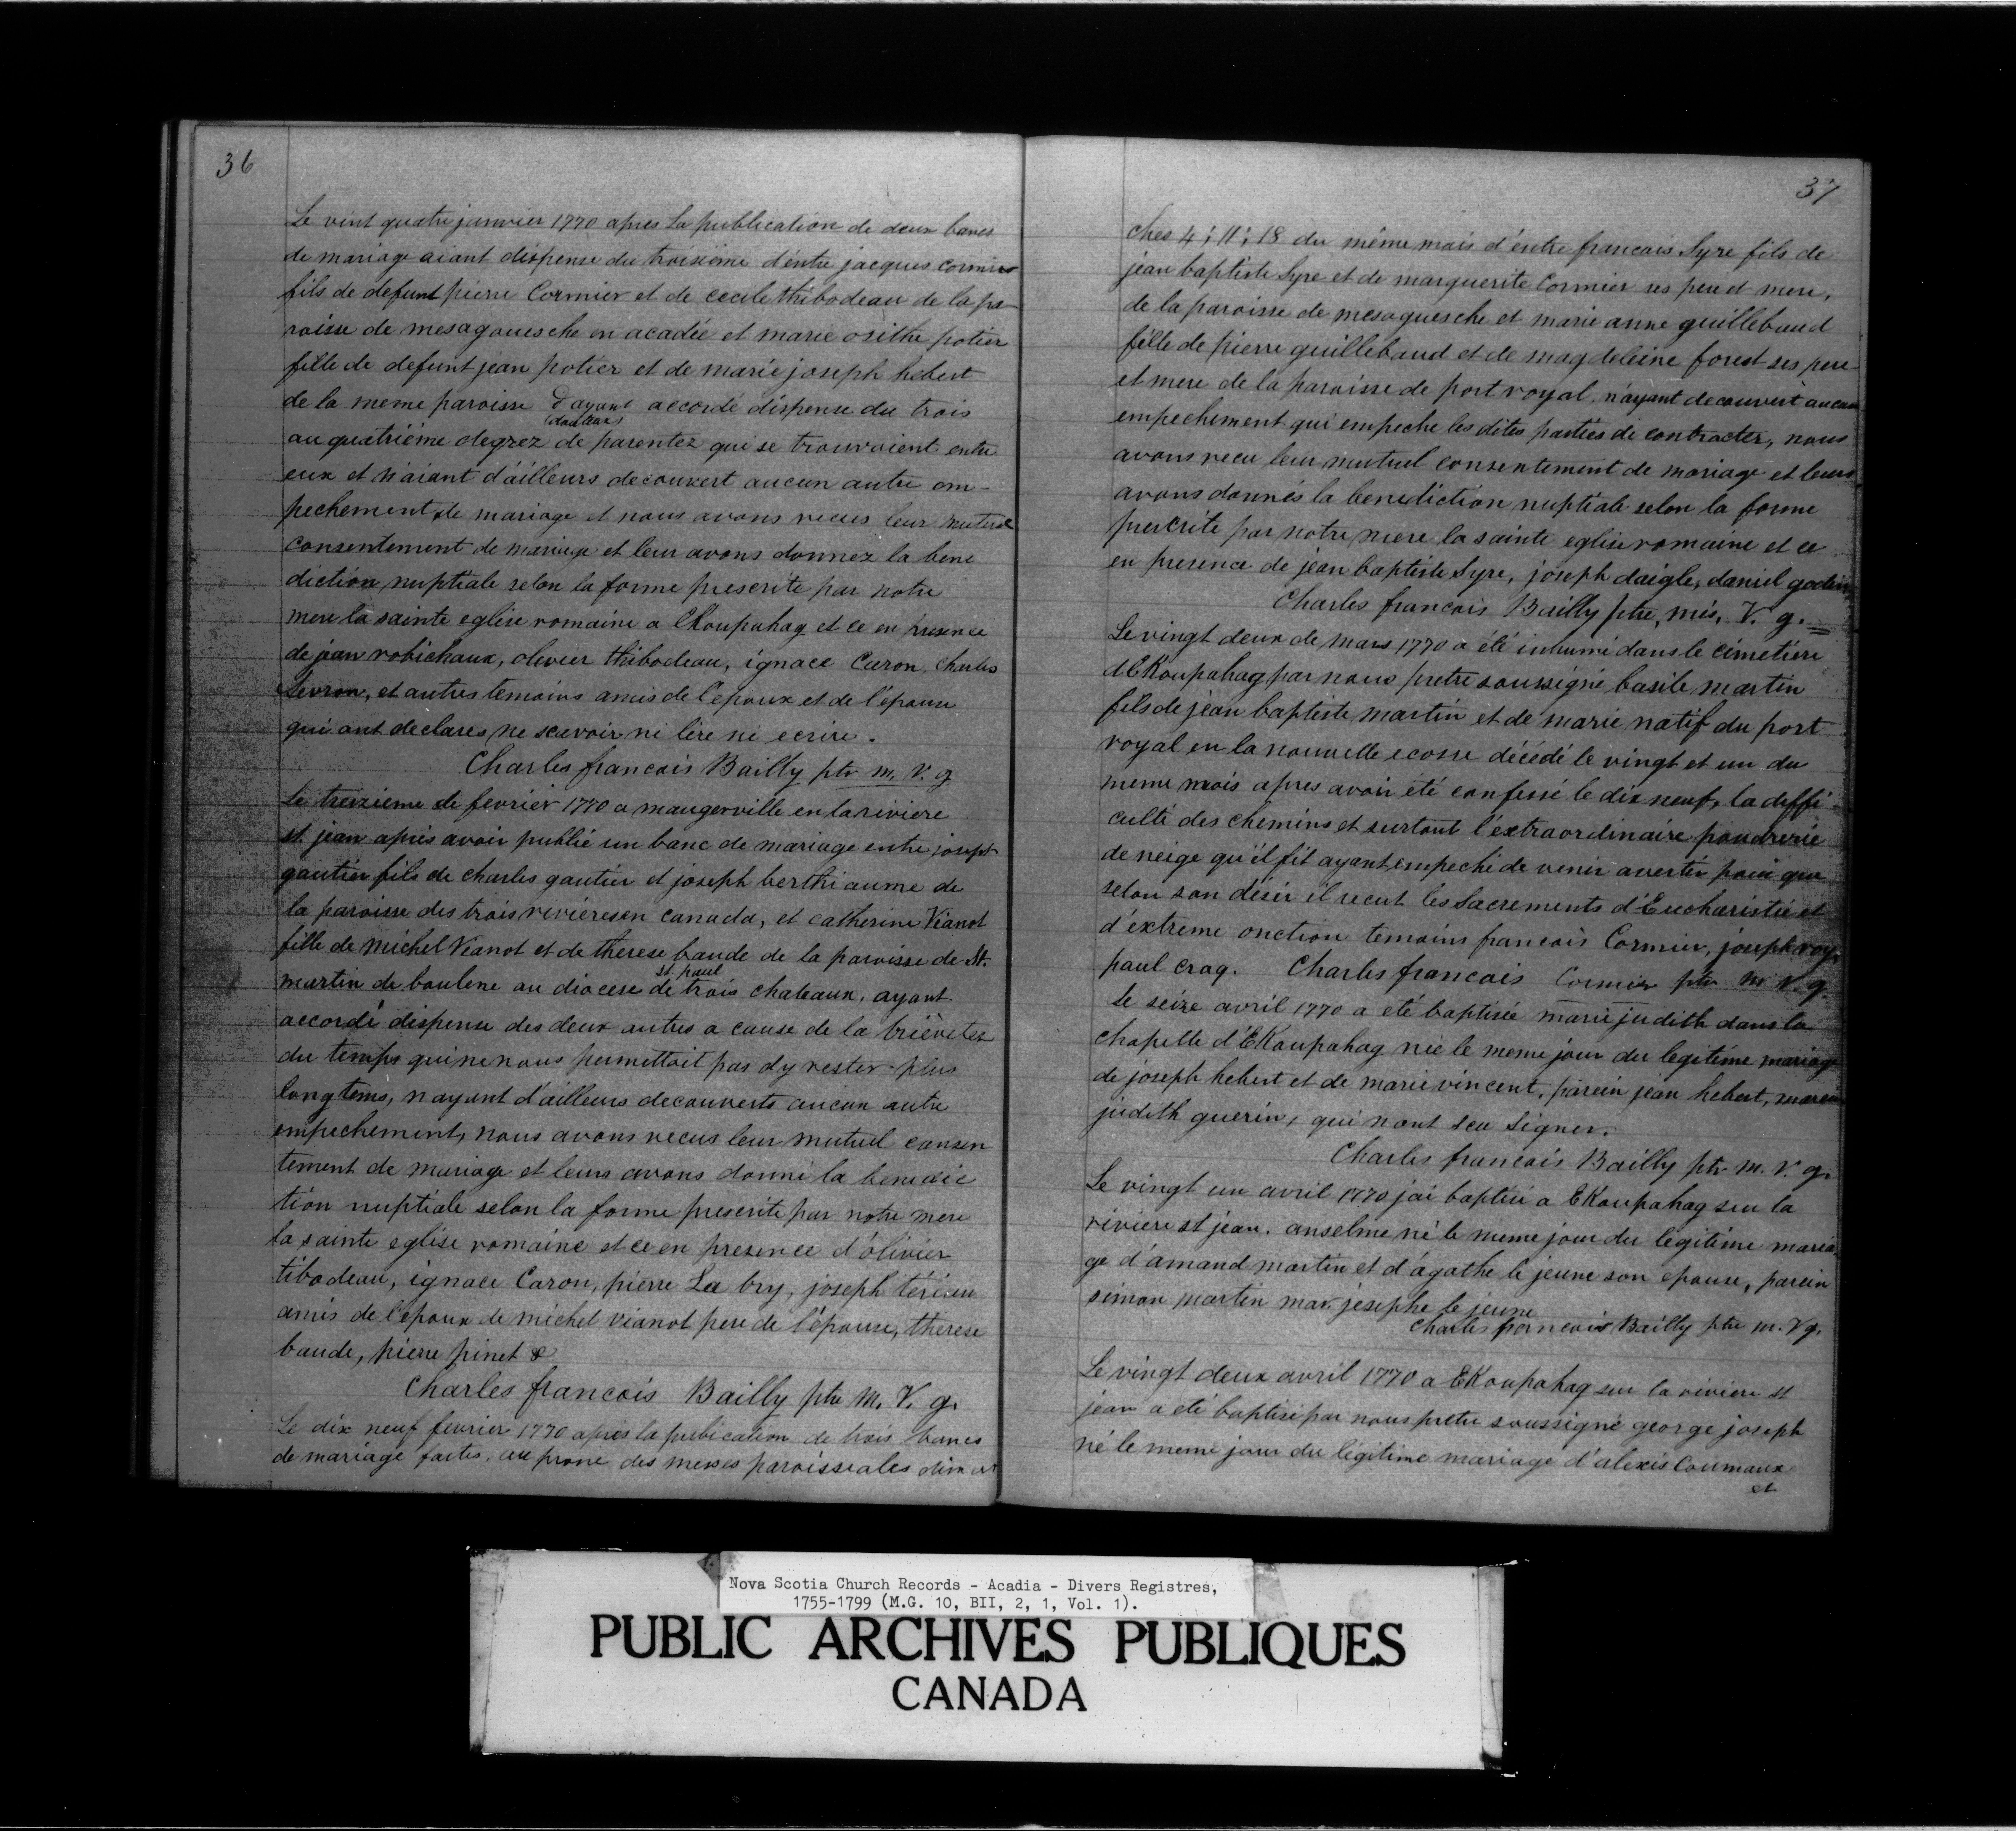 36
Le vint quatre janvier 1770 apres la publication de deux bancs
de mariage aiant dispense du troisiéme d'entre jacques cormier
fils de defunt pierre Cormier et de cecile thibodeau de la pa-
roisse de mesagouesche en acadie et marie osithe potier
fille de defunt jean potier et de marie joseph hebert
de la meme paroisse & ayant accordé dispense du trois
au quatriéme degrez de parentez qui se trouvoient entre
eux et n'aiant d'ailleurs decouvert aucun autre em-
pechement de mariage et nous avons recus leur mutuel
consentement de mariage et leur avons donnez la bene
diction nuptiale selon la forme prescrite par notre
mere la sainte eglise romaine a Ekoupahag et ce en presence
de jean robichaux, olivier thibodeau, ignace Caron, charles
Levron, et autres temoins amis de l'epoux et de l'épouse
qui ont declares ne scavoir ni lire ni ecrire.
Charles francois Bailly ptr m. V. g
Le treizieme de fevrier 1770 a maugerville en la riviere
st. jean aprés avoir publié un banc de mariage entre joseph
gautier fils de charles gautier et joseph berthiaume de
la paroisse des trois rivieres en canada, et catherine Vianot
fille de michel Vianot et de therese baude de la paroisse de St.
martin de baulene au diocese de st. paul trois chateaux, ayant
accordé dispense des deux autres a cause de la brièvetez
du temps qui ne nous permettoit pas d'y rester plus
longtems, n'ayant d'ailleurs decouverts aucun autre
empechement, nous avons recus leur mutuel consen
tement de mariage et leurs avons donné la benedic
tion nuptiale selon la forme prescrite par notre mere
la sainte eglise romaine et ce en presence d'olivier
tibodeau, ignace Caron, pierre La bry, joseph tériau
amis de l'epoux de michel vianot pere de l'épouse, therese
baude, pierre pinet &
Charles francois Bailly ptr M. V. g.
Le dix neuf fevrier 1770 aprés la publication de trois bancs
de mariage faites, au prone des messes paroissiales diman
37
ches 4; 11; 18 du même mois d'éntre francois Syre fils de
jean baptiste Syre et de marguerite Cormier ses peu et mere,
de la paroisse de mesaguesche et marie anne guillebaud
fille de pierre guillebaud et de magdeleine forest ses pere
et mere de la paroisse de port royal, n'ayant decouvert aucun
empechement qui empeche les dites parties de contracter, nous
avons recu leur mutuel consentement de mariage et leurs
avons donnés la benediction nuptiale selon la forme
prescrite par notre mere la sainte eglise romaine et ce
en presence de jean baptiste Syre, joseph daigle, daniel godin
Charles francois Bailly ptre, mis. V. g.
Le vingt deux de mars 1770 a été inhumé dans le cimetiere
d'Ekoupahag par nous pretre soussigné basile martin
fils de jean baptiste martin et de marie natif du port
royal en la nouvelle ecosse décédé le vingt et un du
meme mois apres avoir eté confessé le dix neuf, la diffi-
culté des chemins et surtout l'extraordinaire poudrerie
de neige qu'il fit ayant empeché de venir avertir pour que
selon son désir il recut les Sacrements d'Eucharistie et
d'extreme onction temoins francois Cormier, joseph roy,
paul craq. Charles francois Cormier ptr m V. g.
le seize avril 1770 a eté baptisée marie judith dans la
chapelle d'Ekoupahag née le meme jour du legitime mariage
de joseph hebert et de marie vincent, parein jean hebert, mareine
judith guerin, qui n'ont scu signer.
Charles francois Bailly ptr m. V. g.
Le vingt un avril 1770 j'ai baptisé a Ekoupahag sur la
riviere st jean. anselme né le meme jour du legitime maria
ge d'amand martin et d'agathe le jeune son epouse, parein
simon martin mar. josephe le jeune
Charles francois Bailly ptre m. V g.
Le vingt deux avril 1770 a Ekoupahag sur la riviere st
jean a eté baptisé par nous pretre soussigné george joseph
né le meme jour du légitime mariage d'alexis Coumaux
et
Nova Scotia Church Records - Acadia - Divers Registres,
1755-1799 (M.G. 10, BII, 2, 1, Vol. 1).
PUBLIC ARCHIVES PUBLIQUES
CANADA